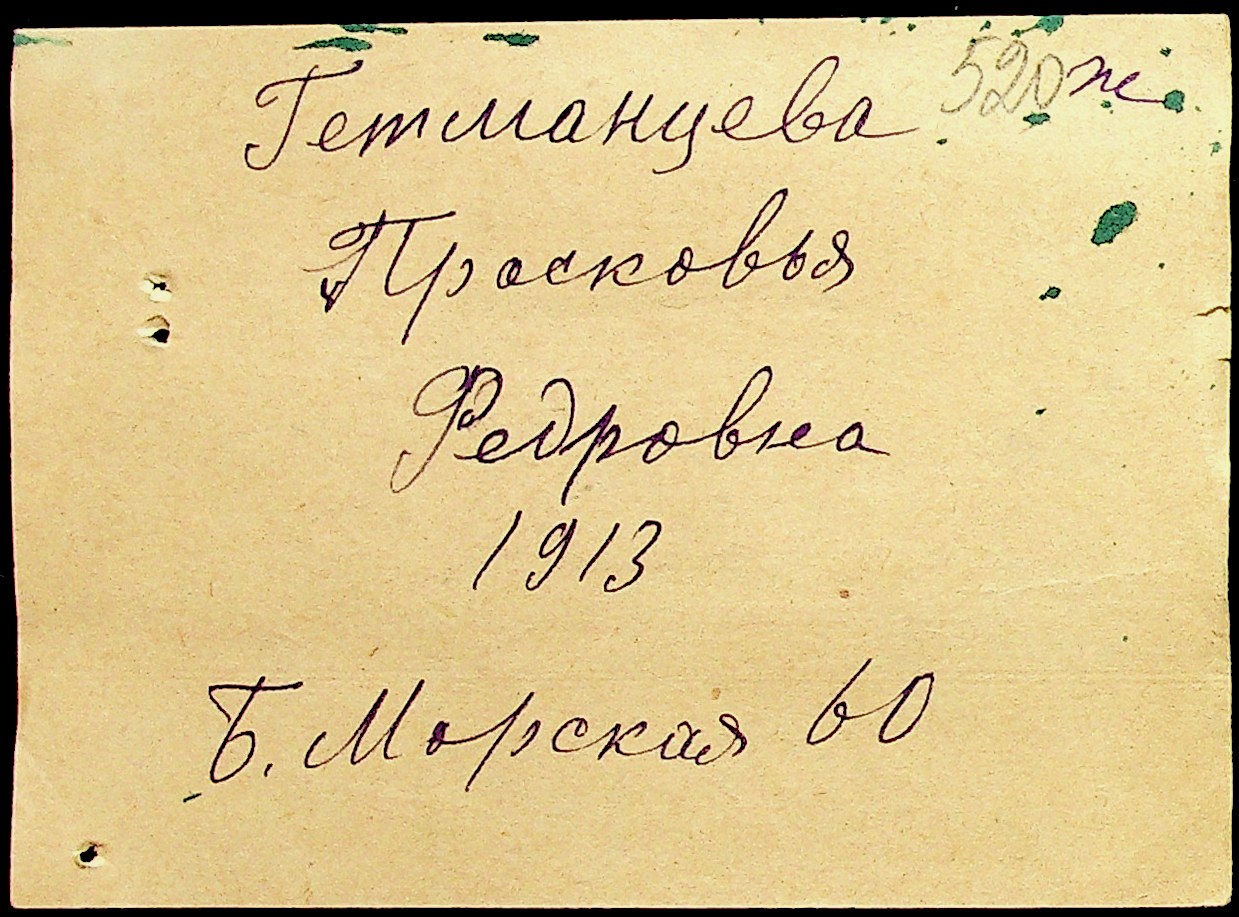 Гетманцева 520 ж
Просковья
Федровна
1913
Б. Морская 60